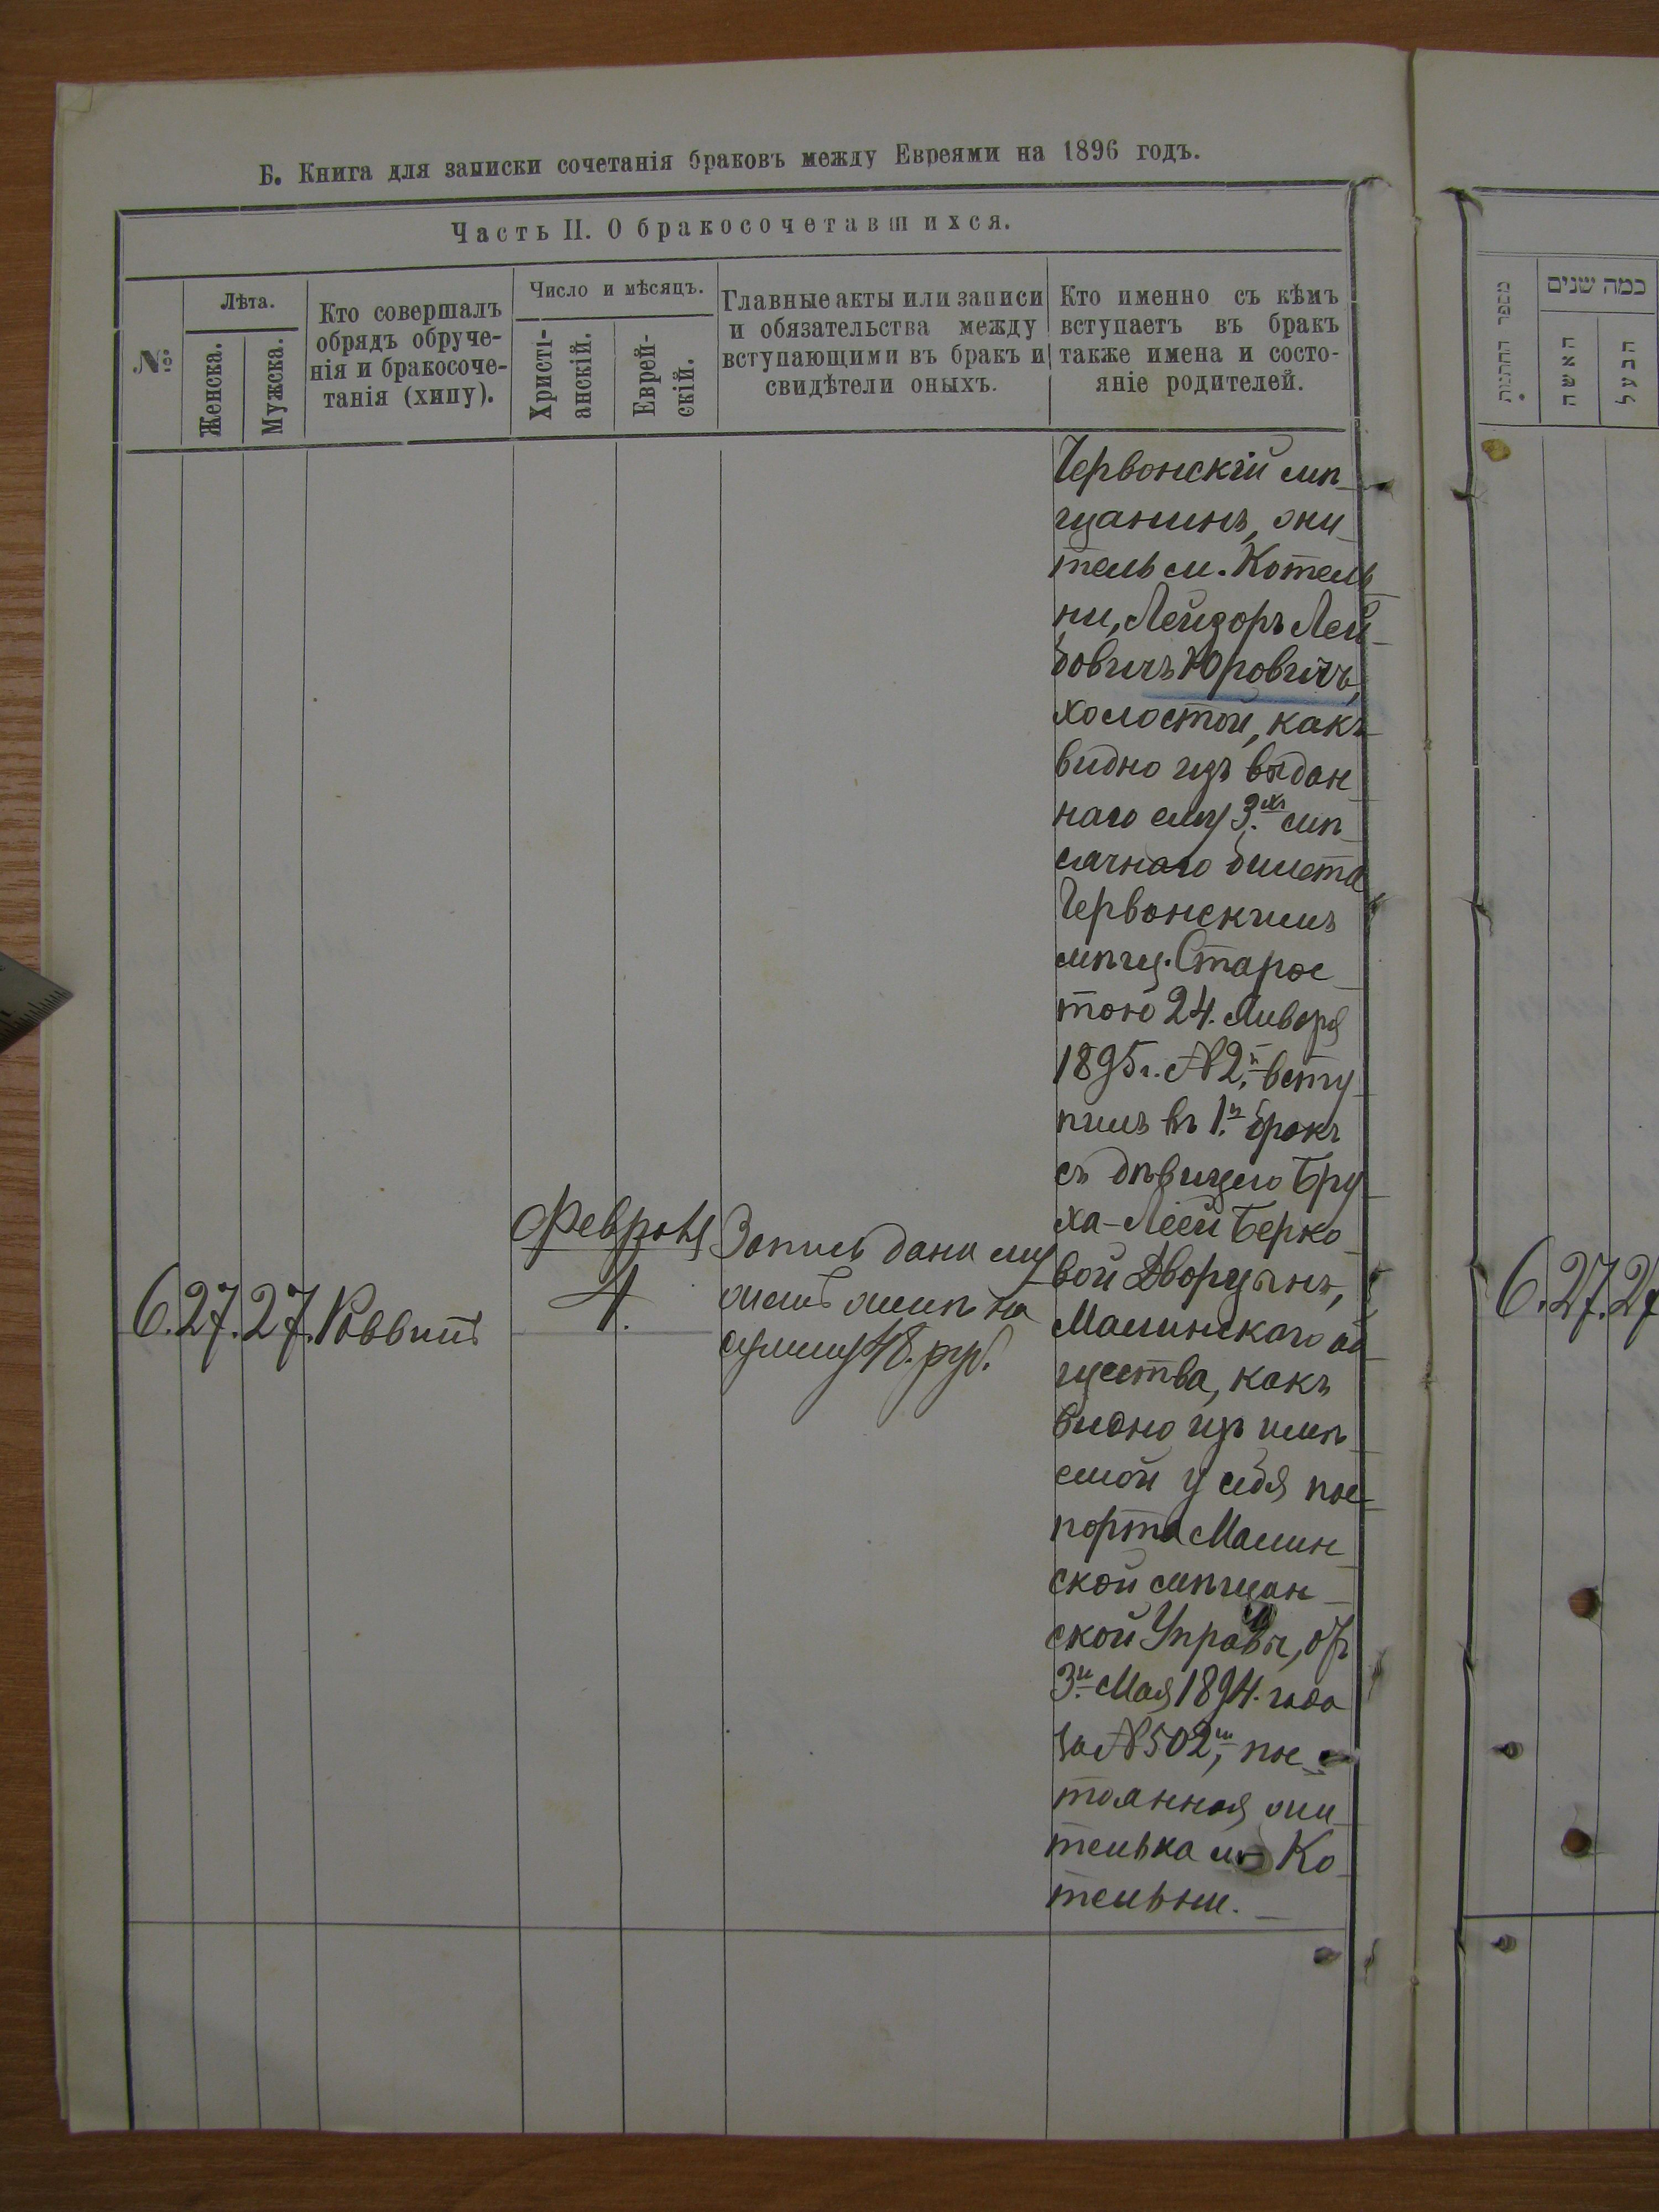 Б. Книга для записки сочетанія браковъ между Евреями на 1896 годъ.
Часть II. О бракосочетавшихся.
№
Лѣта.
Женска.
Мужска.
Кто совершалъ
обрядъ обруче-
нія и бракосоче-
танія (хипу).
Число и мѣсяцъ.
Христі-
анскій.
Еврей-
скій.
Главные акты или записи
и обязательства между
вступающими въ бракъ и
свидѣтели оныхъ.
Кто именно съ кѣмъ
вступаетъ въ бракъ
также имена и состо-
яніе родителей.
6. 27. 27. Раввинъ
Февраля
4.
Запись дана му
жемъ женѣ на
сумму 48. руб.
Червонскій мѣ-
щанинъ, жи-
тель м. Котель
ни, Лейзоръ Лей-
бовичъ Юровичъ,
холостой, какъ
видно изъ выдан-
наго ему 3.хъ мѣ-
сячнаго билета
Червонскимъ
мѣщ. Старос-
тою 24. Января
1895 г. №2,й всту-
пилъ въ 1.й бракъ
съ дѣвицею Бру-
ха-Леей Берко-
вой Дворцынъ,
Малинскаго об-
щества, какъ
видно изъ имѣ-
емой у себя пас-
порта Малин-
ской мѣщан-
ской Управы, отъ
3.й Мая 1894. года
за №502,й пос-
тоянная жи-
телька м. Ко-
тельни.
מספר החתונות
כמה שנים
האשה
הבעל
6. 27. 27